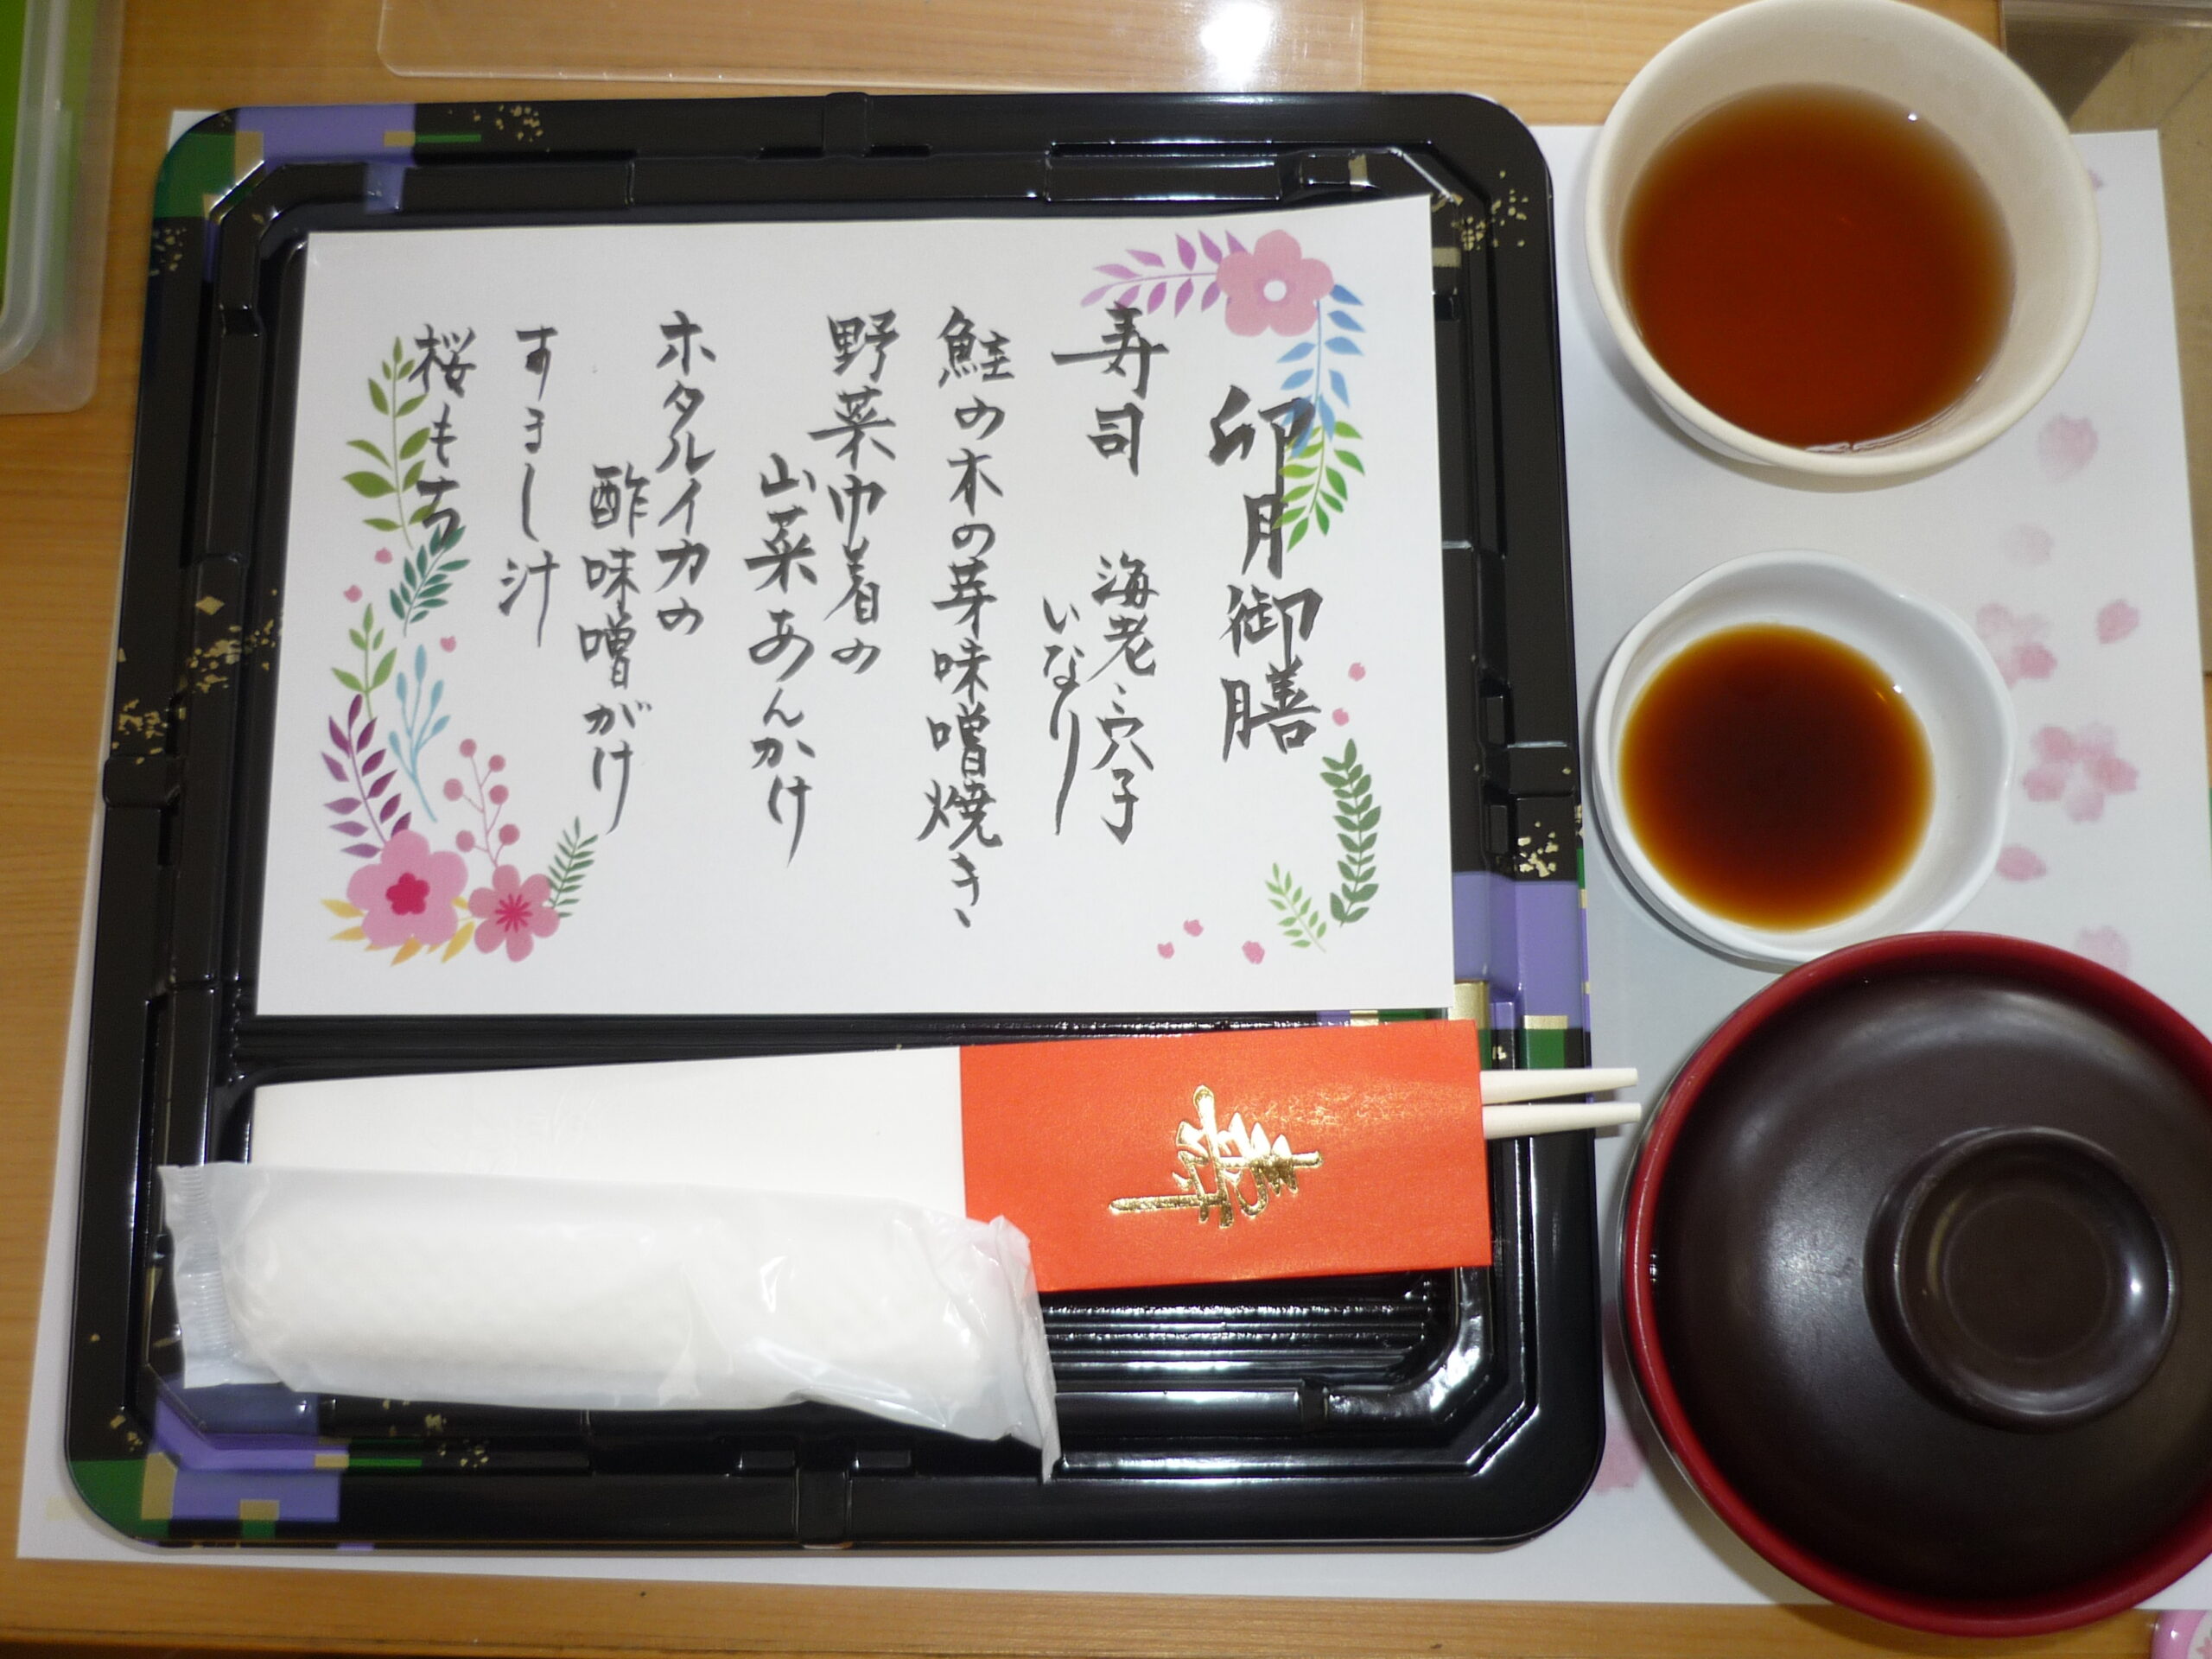 卯月御膳
寿司 海老、穴子
いなり
鮭の木の芽味噌焼き、
野菜巾着の
山菜あんかけ
ホタルイカの
酢味噌がけ
すまし汁
桜もち
寿